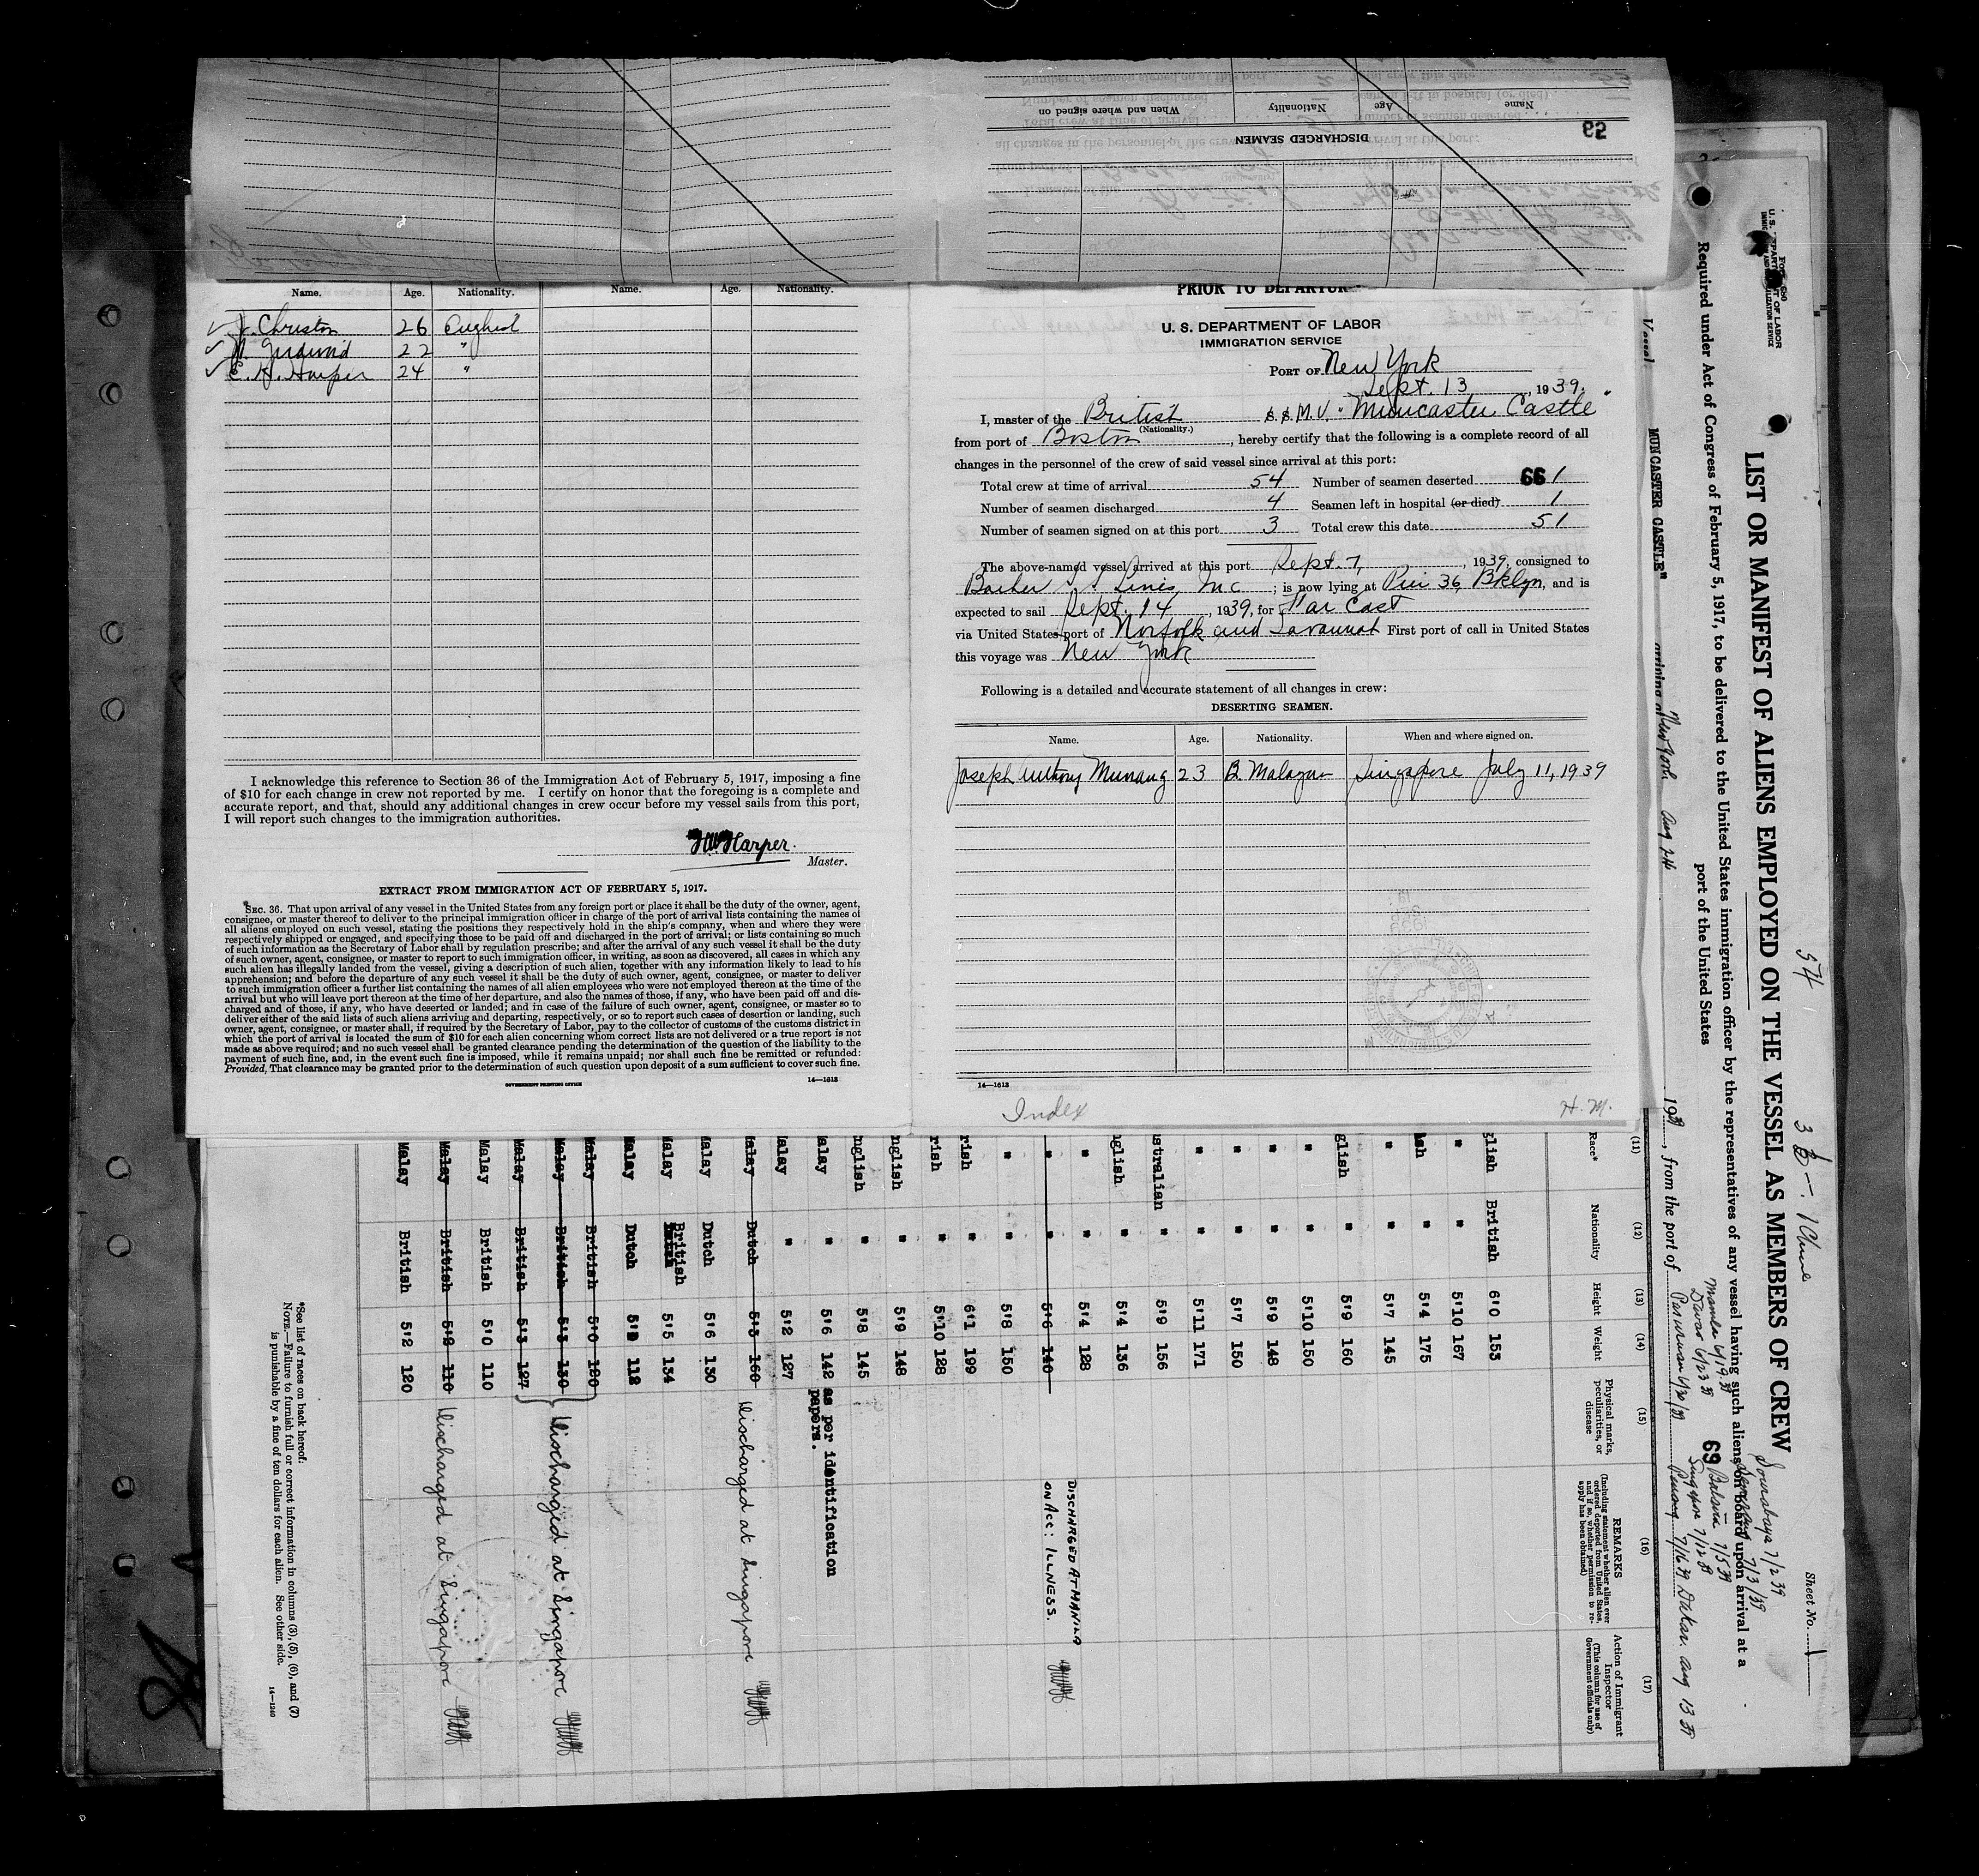 When and where signed on
Nationality
Age
Name
DISCHARGED SEAMEN
Name. Age. Nationality. Name. Age. Nationality.
26
22 "
E. H. Harper 24 "
I acknowledge this reference to Section 36 of the Immigration Act of February 5, 1917, imposing a fine
of $10 for each change in crew not reported by me. I certify on honor that the foregoing is a complete and
accurate report, and that, should any additional changes in crew occur before my vessel sails from this port,
I will report such changes to the immigration authorities.
Harper.
Master.
EXTRACT FROM IMMIGRATION ACT OF FEBRUARY 5, 1917.
SEC. 36. That upon arrival of any vessel in the United States from any foreign port or place it shall be the duty of the owner, agent,
consignee, or master thereof to deliver to the principal immigration officer in charge of the port of arrival lists containing the names of
all aliens employed on such vessel, stating the positions they respectively hold in the ship's company, when and where they were
respectively shipped or engaged, and specifying those to be paid off and discharged in the port of arrival; or lists containing so much
of such information as the Secretary of Labor shall by regulation prescribe; and after the arrival of any such vessel it shall be the duty
of such owner, agent, consignee, or master to report to such immigration officer, in writing, as soon as discovered, all cases in which any
such alien has illegally landed from the vessel, giving a description of such alien, together with any information likely to lead to his
apprehension; and before the departure of any such vessel it shall be the duty of such owner, agent, consignee, or master to deliver
to such immigration officer a further list containing the names of all alien employees who were not employed thereon at the time of the
arrival but who will leave port thereon at the time of her departure, and also the names of those, if any, who have been paid off and dis-
charged and of those, if any, who have deserted or landed; and in case of the failure of such owner, agent, consignee, or master so to
deliver either of the said lists of such aliens arriving and departing, respectively, or so to report such cases of desertion or landing, such
owner, agent, consignee, or master shall, if required by the Secretary of Labor, pay to the collector of customs of the customs district in
which the port of arrival is located the sum of $10 for each alien concerning whom correct lists are not delivered or a true report is not
made as above required; and no such vessel shall be granted clearance pending the determination of the question of the liability to the
payment of such fine, and, in the event such fine is imposed, while it remains unpaid; nor shall such fine be remitted or refunded:
Provided, That clearance may be granted prior to the determination of such question upon deposit of a sum sufficient to cover such fine.
GOVERNMENT PRINTING OFFICE 14—1613
PRIOR TO DEPARTURE
U. S. DEPARTMENT OF LABOR
IMMIGRATION SERVICE
PORT OF New York
Sept. 13, 1939.
I, master of the British S. S. M. V. "Muncaster Castle"
(Nationality.)
from port of Boston, hereby certify that the following is a complete record of all
changes in the personnel of the crew of said vessel since arrival at this port:
Total crew at time of arrival 54 Number of seamen deserted 66 1
Number of seamen discharged 4 Seamen left in hospital (or died) 1
Number of seamen signed on at this port 3 Total crew this date 51
The above-named vessel arrived at this port Sept. 7, 1939, consigned to
Barber S S Lines, Inc; is now lying at Pier 36, Bklyn, and is
expected to sail Sept. 14, 1939, for Far East
via United States port of Norfolk and Savannah First port of call in United States
this voyage was New York
Following is a detailed and accurate statement of all changes in crew:
DESERTING SEAMEN.
Name. Age. Nationality. When and where signed on.
Joseph Anthony Munang 23 B. Malayan Singapore July 11, 1939
14—1613
Index H. M.
U. S. DEPARTMENT OF LABOR
Sheet No. 1
LIST OR MANIFEST OF ALIENS EMPLOYED ON THE VESSEL AS MEMBERS OF CREW
Required under Act of Congress of February 5, 1917, to be delivered to the United States immigration officer by the representatives of any vessel having such aliens on board upon arrival at a
port of the United States
Vessel MUNCASTER CASTLE" arriving at New York Aug 24 1939, from the port of
54
69
Manila 6/19 39
Davao 6/23 39
Sourabaya 7/2 39
Singapore 7/12 39
Penang 7/16 39 Dakar. Aug 13 39
(11) (12) (13) (14) (15) (16) (17)
Race* Nationality Height Weight Physical marks, peculiarities, or disease
REMARKS
(Including statement whether alien ever ordered deported from United States, and if so, whether permission to re-apply has been obtained)
Action of Immigrant Inspector
(This column for use of Government officials only)
glish British 6'0 153
" " 5'10 167
" 5'4 175
" " 5'7 145
glish " 5'9 160
" " 5'10 150
" " 5'9 148
" " 5'7 150
" " 5'11 171
ustralian " 5'9 156
nglish " 5'4 136
" " 5'4 128
" " 5'6 140 DISCHARGED AT MANILA ON ACC: ILLNESS.
" " 5'8 150
rish " 6'1 199
rish " 5'10 128
nglish " 5'9 148
nglish " 5'8 145
alay " 5'6 142 as per identification papers.
alay " 5'2 127
alay Dutch 5'3 160 Discharged at Singapore
Malay Dutch 5'6 130
Malay British 5'5 134
Malay Dutch 112
Malay British 5'0 120
Malay British 5'3 130 Discharged at Singapore
Malay British 5'3 127
Malay British 5'0 110
Malay British 5'2 110 Discharged at Singapore
Malay British 5'2 120
*See list of races on back hereof.
NOTE.—Failure to furnish full or correct information in columns (3), (5), (6), and (7)
is punishable by a fine of ten dollars for each alien. See other side.
14—1240